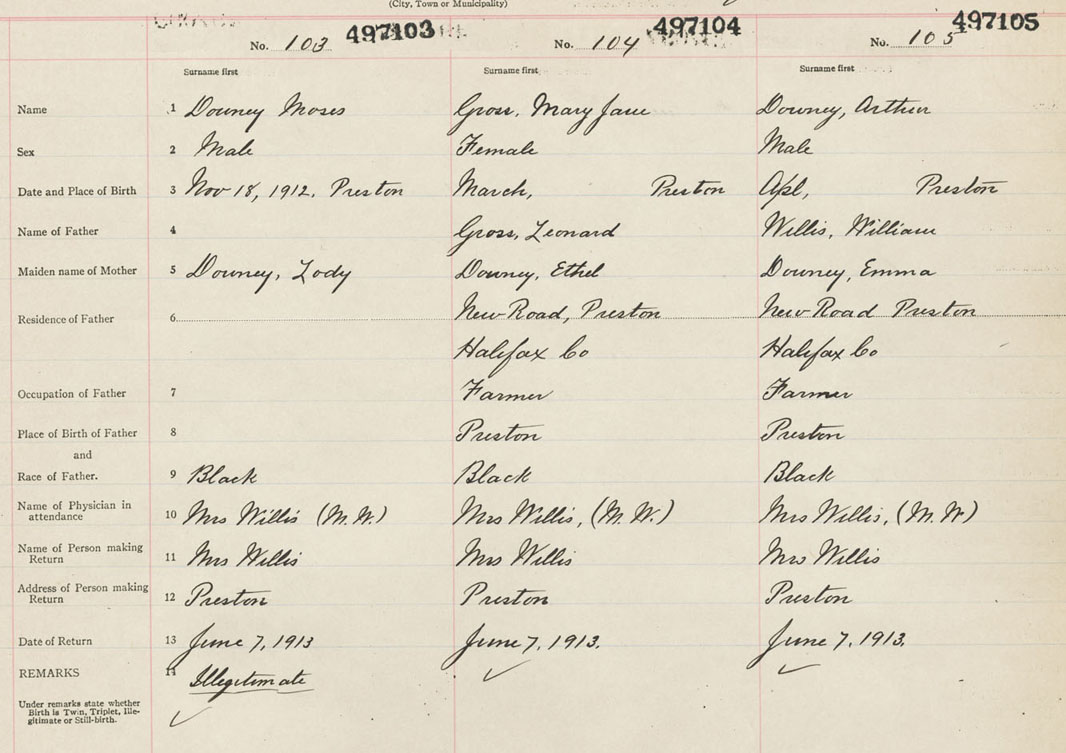 (City, Town or Municipality)
No. 103 497103 No. 104 497104 No. 105 497105
Surname first Surname first Surname first
Name 1 Downey Moses Gross, Mary Jane Downey, Arthur
Sex 2 Male Female Male
Date and Place of Birth 3 Nov 18, 1912. Preston March, Preston Apl, Preston
Name of Father 4 Gross, Leonard Willis, William
Maiden name of Mother 5 Downey, Zody Downey, Ethel Downey, Emma
Residence of Father 6 New Road, Preston New Road Preston
Halifax Co Halifax Co
Occupation of Father 7 Farmer Farmer
Place of Birth of Father 8 Preston Preston
and
Race of Father. 9 Black Black Black
Name of Physician in
attendance 10 Mrs Willis (M.W.) Mrs Willis, (M.W.) Mrs Willis, (M.W)
Name of Person making
Return 11 Mrs Willis Mrs Willis Mrs Willis
Address of Person making
Return 12 Preston Preston Preston
Date of Return 13 June 7, 1913 June 7, 1913. June 7, 1913.
REMARKS 14 Illegitimate
Under remarks state whether
Birth is Twin, Triplet, Ille-
gitimate or Still-birth.